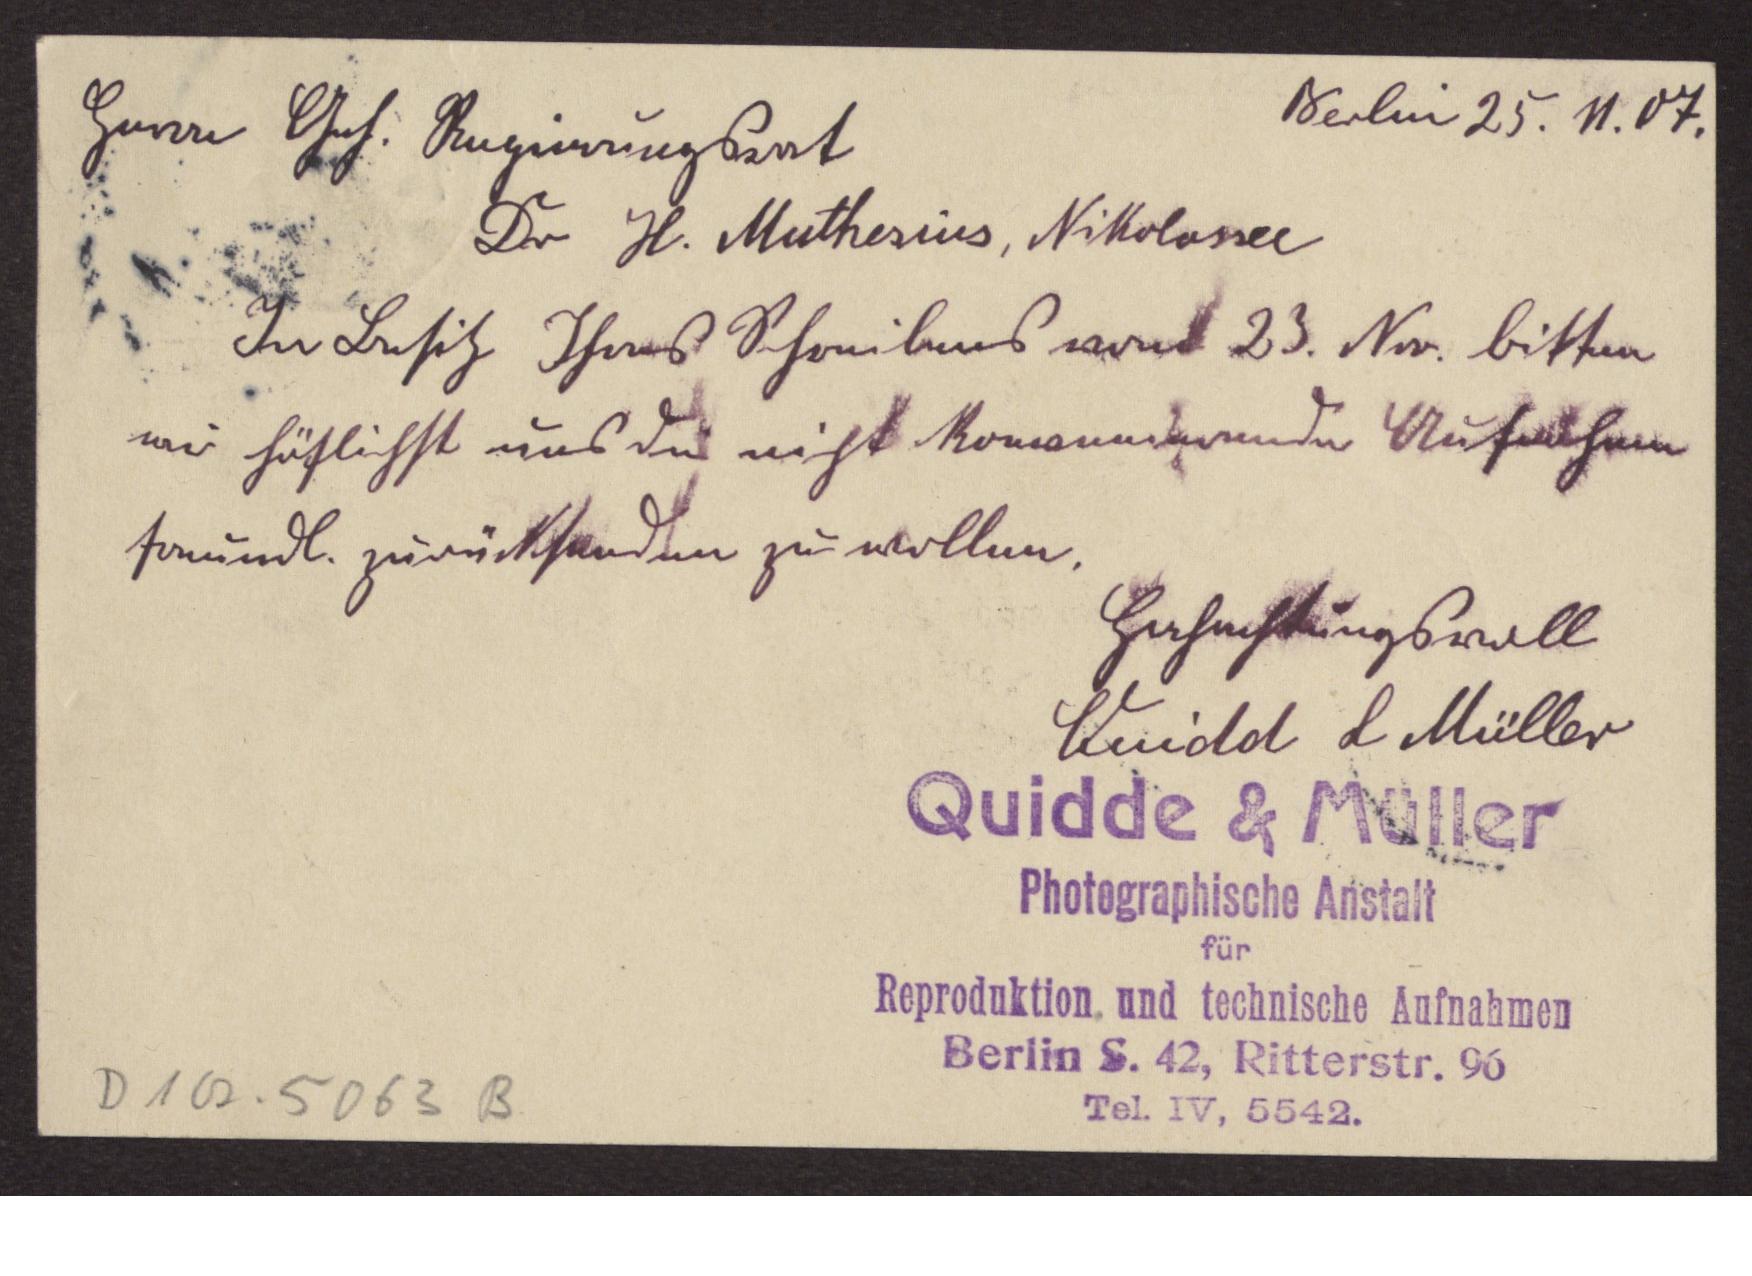 Berlin 25. 11. 07.
Herrn Geh. Regierungsrat
Dr H. Muthesius, Nikolassee
In Besitz Ihres Schreibens vom 23. Nov. bitten
wir höflichst uns die nicht konvenierenden Aufnahmen
freundl. zurücksenden zu wollen.
Hochachtungsvoll
Quidd & Müller
Quidde & Müller
Photographische Anstalt
für
Reproduktion und technische Aufnahmen
Berlin S. 42, Ritterstr. 96
Tel. IV, 5542.
D 102.5063 B